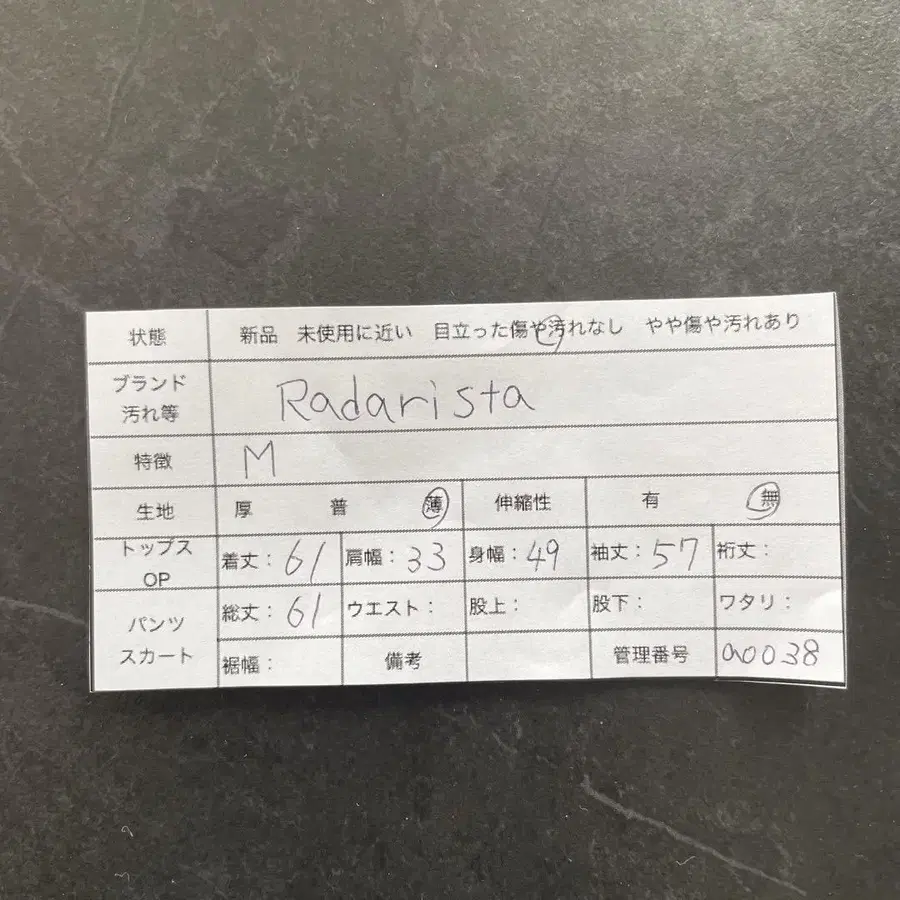 状態 新品 未使用に近い 目立った傷や汚れなし やや傷や汚れあり
ブランド
汚れ等 Radarista
特徴 M
生地 厚 普 薄 伸縮性 有 無
トップス
OP 着丈: 61 肩幅: 33 身幅: 49 袖丈: 57 裄丈:
パンツ
スカート 総丈: 61 ウエスト: 股上: 股下: ワタリ:
裾幅: 備考 管理番号 a0038